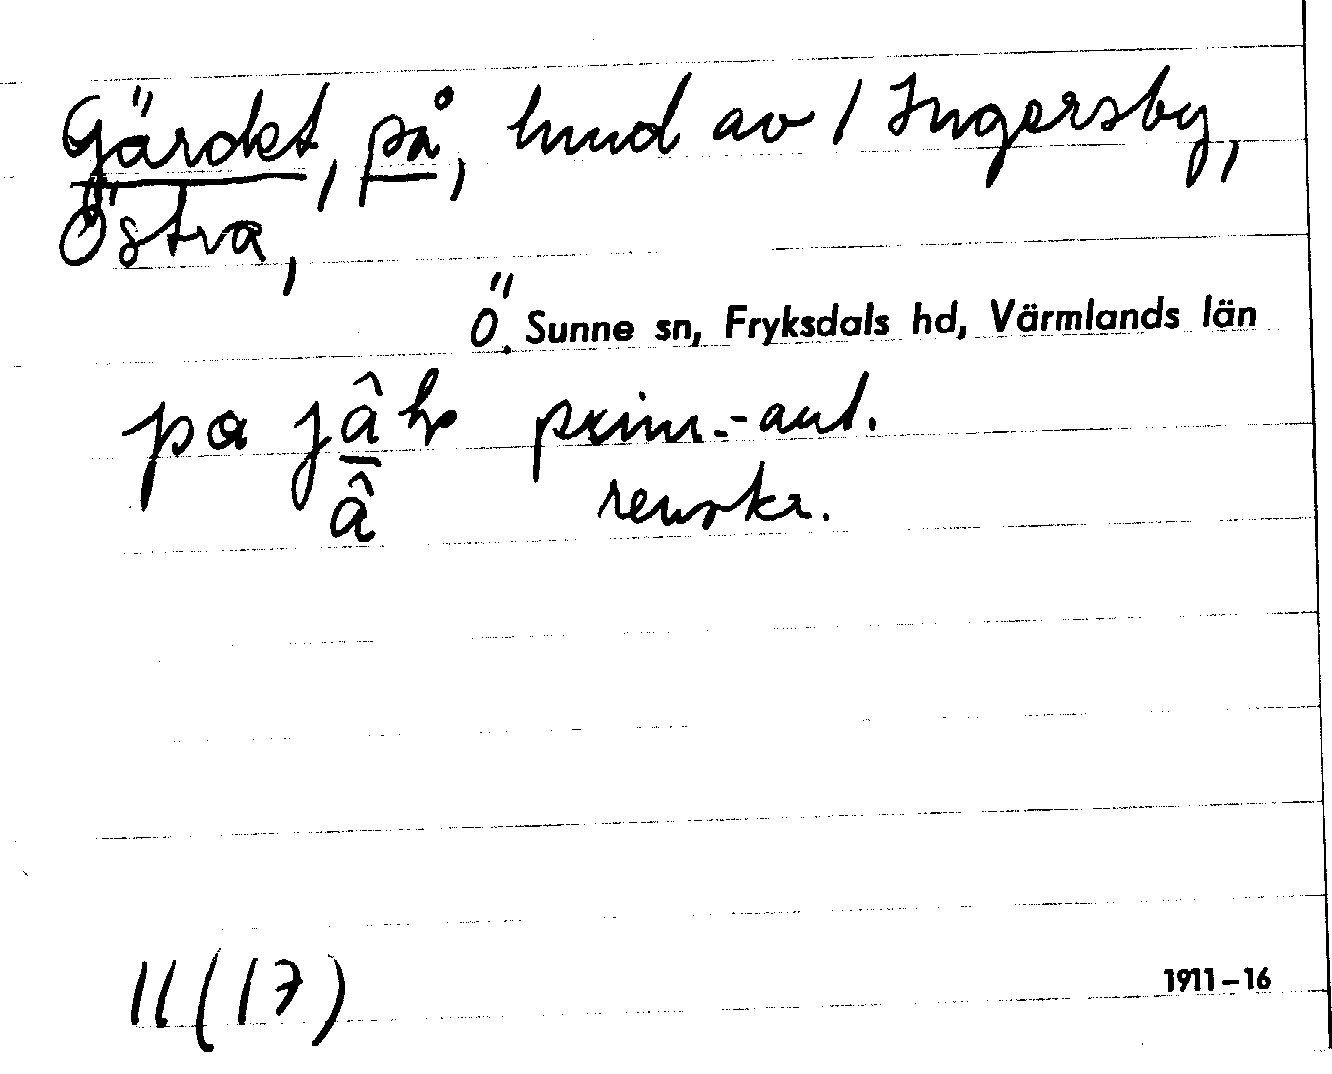 Gärdet, på, hmd av 1 Ingersby,
Östra,
Ö. Sunne sn, Fryksdals hd, Värmlands län
pa jâ prim.-ant.
â renskr.
11(17) 1911–16